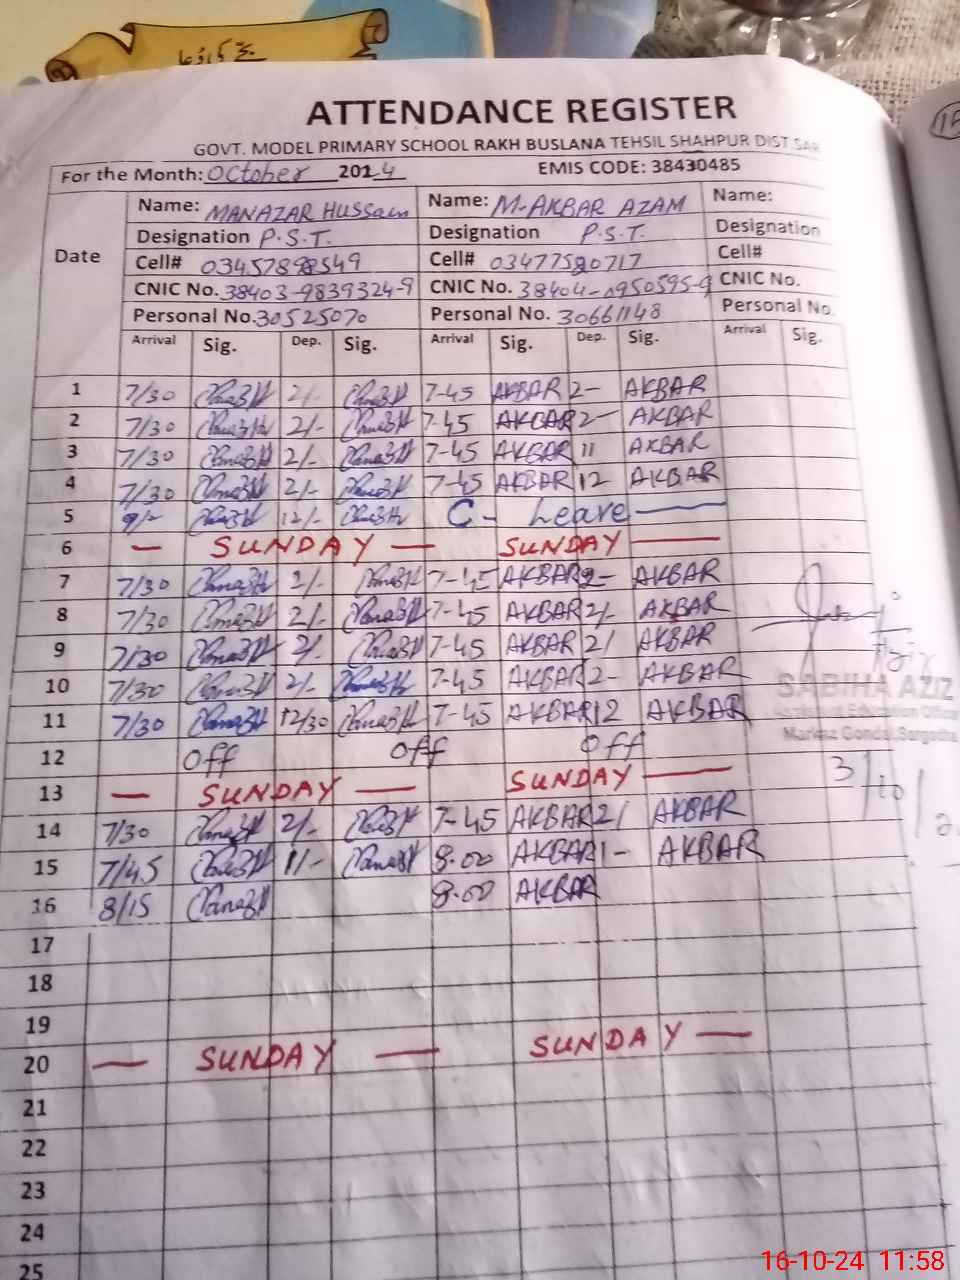 ATTENDANCE REGISTER
GOVT. MODEL PRIMARY SCHOOL RAKH BUSLANA TEHSIL SHAHPUR DIST.SAR
For the Month: October 2024 EMIS CODE: 38430485
Name: MANAZAR HUSSain Name: M-AKBAR AZAM Name:
Designation P.S.T. Designation P.S.T. Designation
Date
Cell# 03457898549 Cell# 03477580717 Cell#
CNIC No. 38403-9839324-9 CNIC No. 38404-1950595-9 CNIC No.
Personal No. 30525070 Personal No. 30661148 Personal No.
Arrival Sig. Dep. Sig. Arrival Sig. Dep. Sig. Arrival Sig.
1 7/30 2/- 7-45 AKBAR 2- AKBAR
2 7/30 2/- 7-45 AKBAR 2- AKBAR
3 7/30 2/- 7-45 AKBAR 11 AKBAR
4 7/30 2/- 7-45 AKBAR 12 AKBAR
5 12/- C- Leave
6 — SUNDAY — SUNDAY —
7 7/30 2/- 7-45 AKBAR 2- AKBAR
8 7/30 2/- 7-45 AKBAR 2/- AKBAR
9 7/30 2/- 7-45 AKBAR 2/ AKBAR
10 7/30 2/- 7-45 AKBAR 2- AKBAR
SABIHA AZIZ
11 7/30 12/30 7-45 AKBAR 12 AKBAR
Assistant Education Officer
Markaz Gondal, Sargodha
12 Off Off Off
13 — SUNDAY — SUNDAY —
3/10/2
14 7/30 2/- 7-45 AKBAR 2/ AKBAR
15 7/45 11- 8.00 AKBAR 1- AKBAR
16 8/15 8.00 AKBAR
17
18
19
20 — SUNDAY — SUNDAY —
21
22
23
24
25
16-10-24 11:58